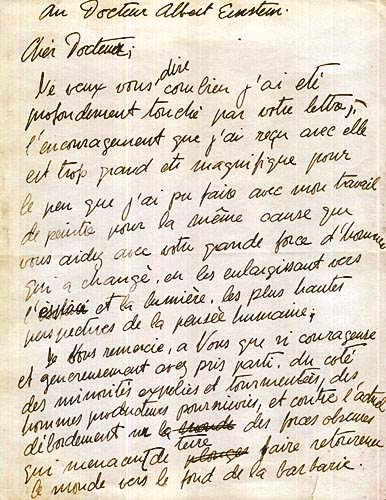 Au Docteur Albert Einstein.
Cher Docteur,
Je veux vous dire combien j'ai eté
profondement touché par votre lettre,
l'encouragement que j'ai reçu avec elle
est trop grand et magnifique pour
le peu que j'ai pu faire avec mon travail
de peintre pour la même cause que
vous aidez avec votre grande force d'homme
qui a changé, en les enlargissant vers
l' et la lumière, les plus hautes
perspectives de la pensée humaine;
Je Vous remercie, a Vous que si courageuse
et genereusement avez pris parti, du coté
des minorités expolies et tourmentées, des
hommes producteurs poursuivies, et contre l'actuel
débordement sur la des forces obscures
qui menacent de faire retourner
terre
le monde vers le fond de la barbarie.